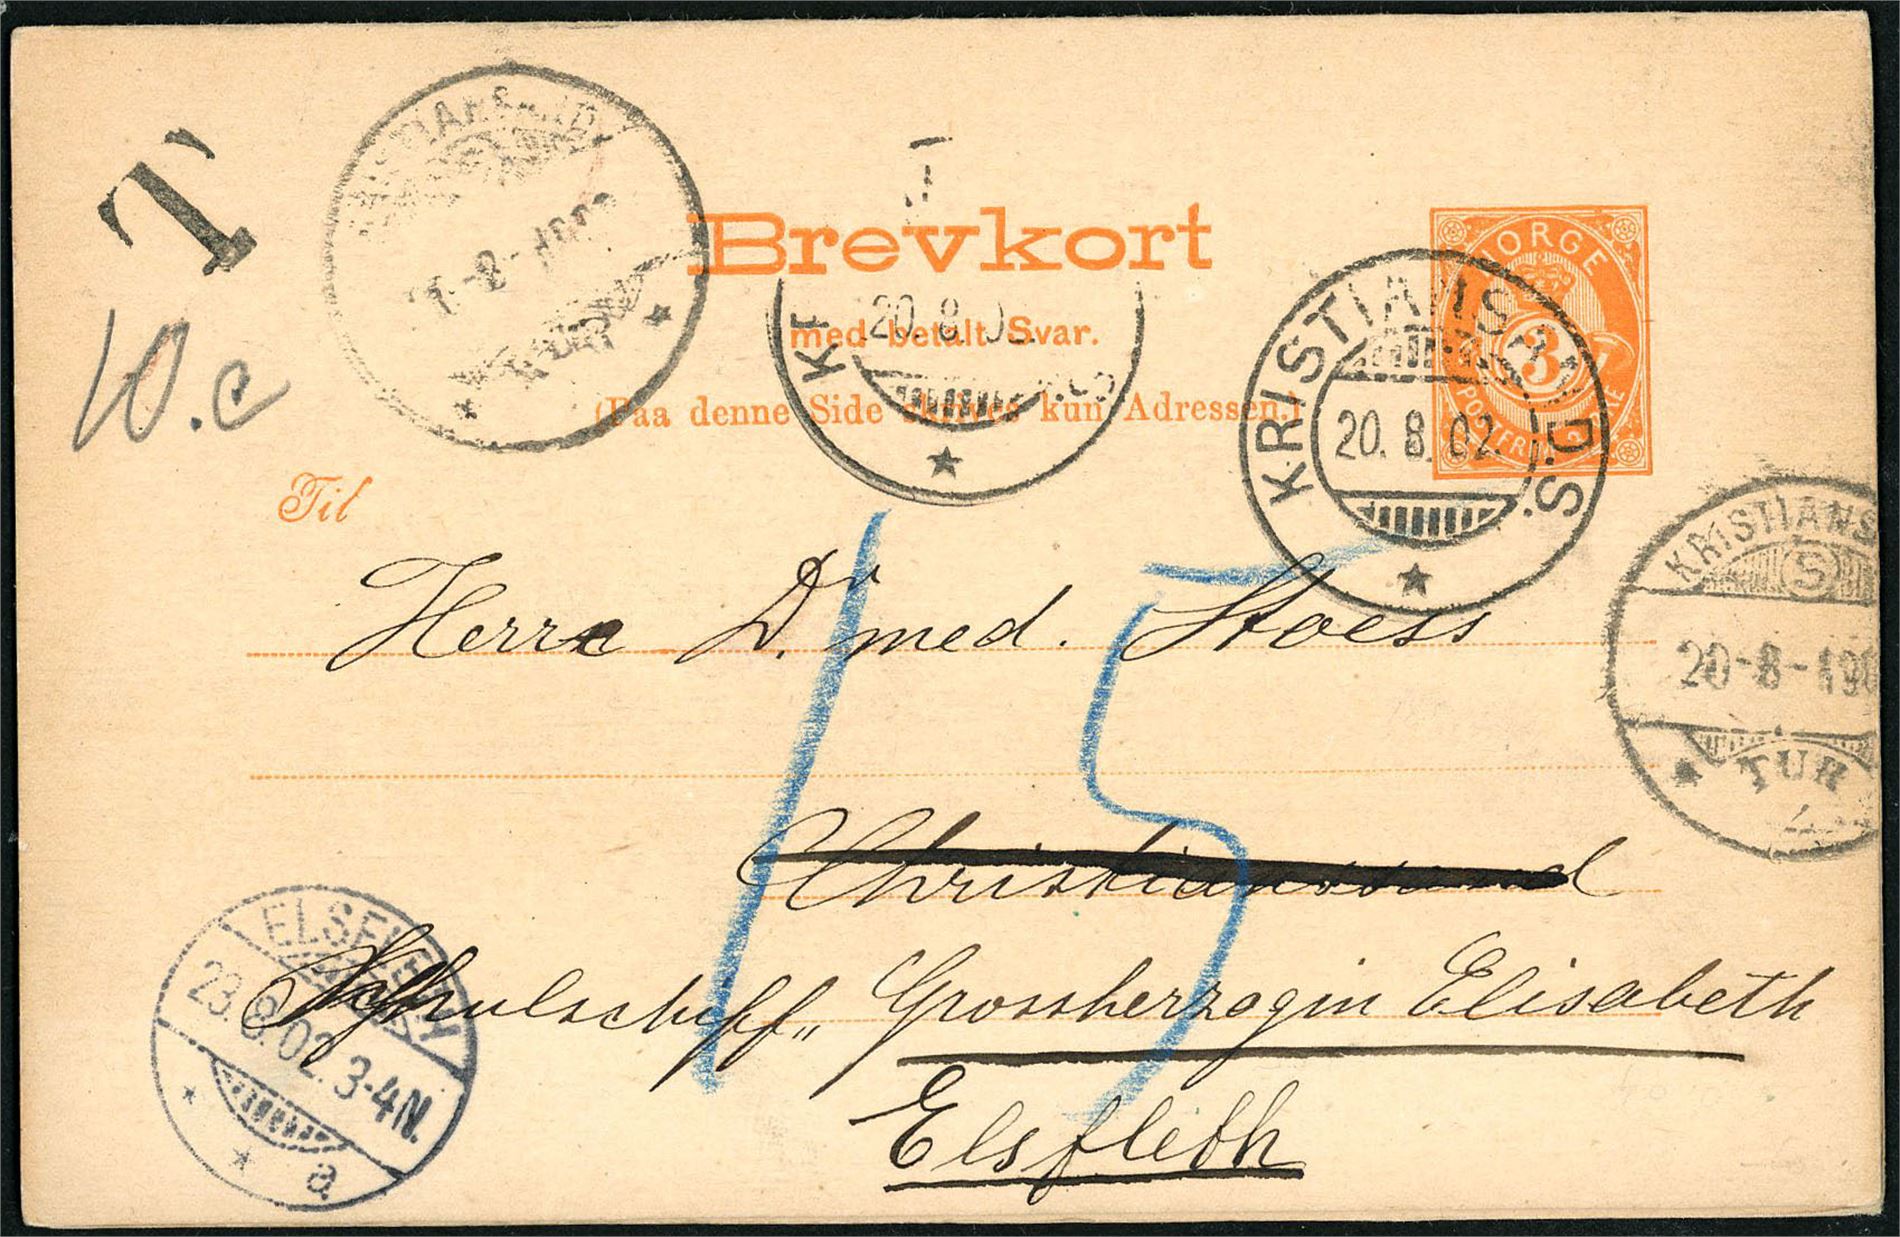 T
10.c
Brevkort
med betalt Svar.
(Paa denne Side skrives kun Adressen.)
NORGE
3
POSTFRIM
KRISTIANSAND.S.
20.8.02.
20.8.
KRISTIANS
S
20-8-190
TUR
Til
15
Herrn Dr. med. Stoess
Christianssand
Schulschiff „Grossherzogin Elisabeth
Elsfleth
ELSFLETH
23.8.02.3-4N.
a